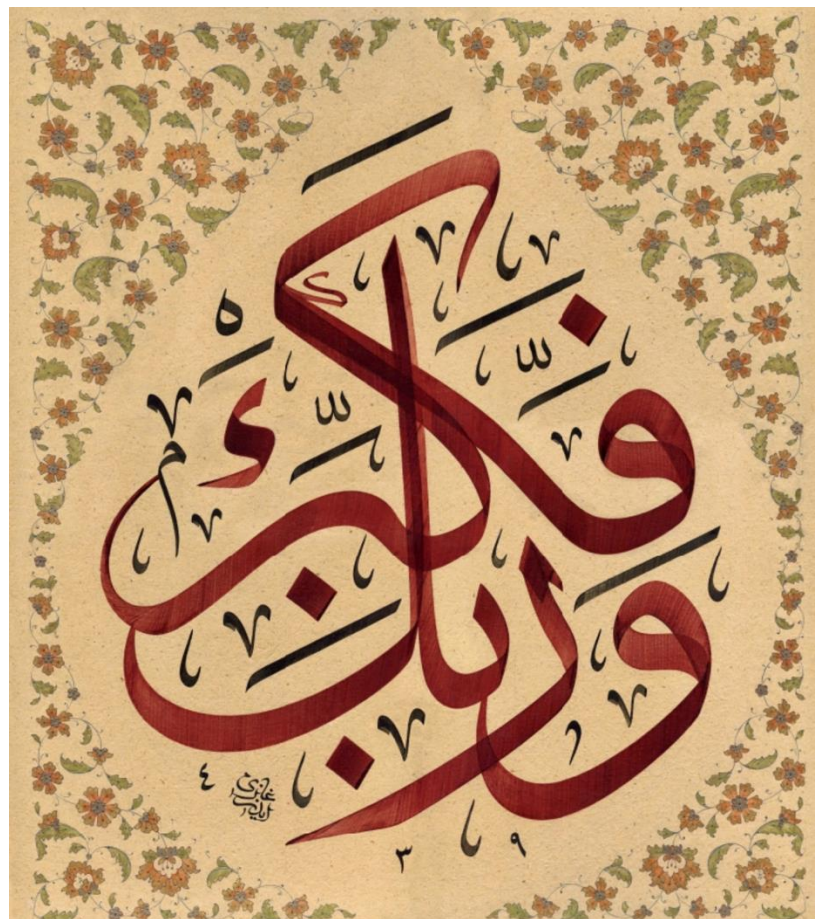 وَرَبَّكَ فَكَبِّرْ